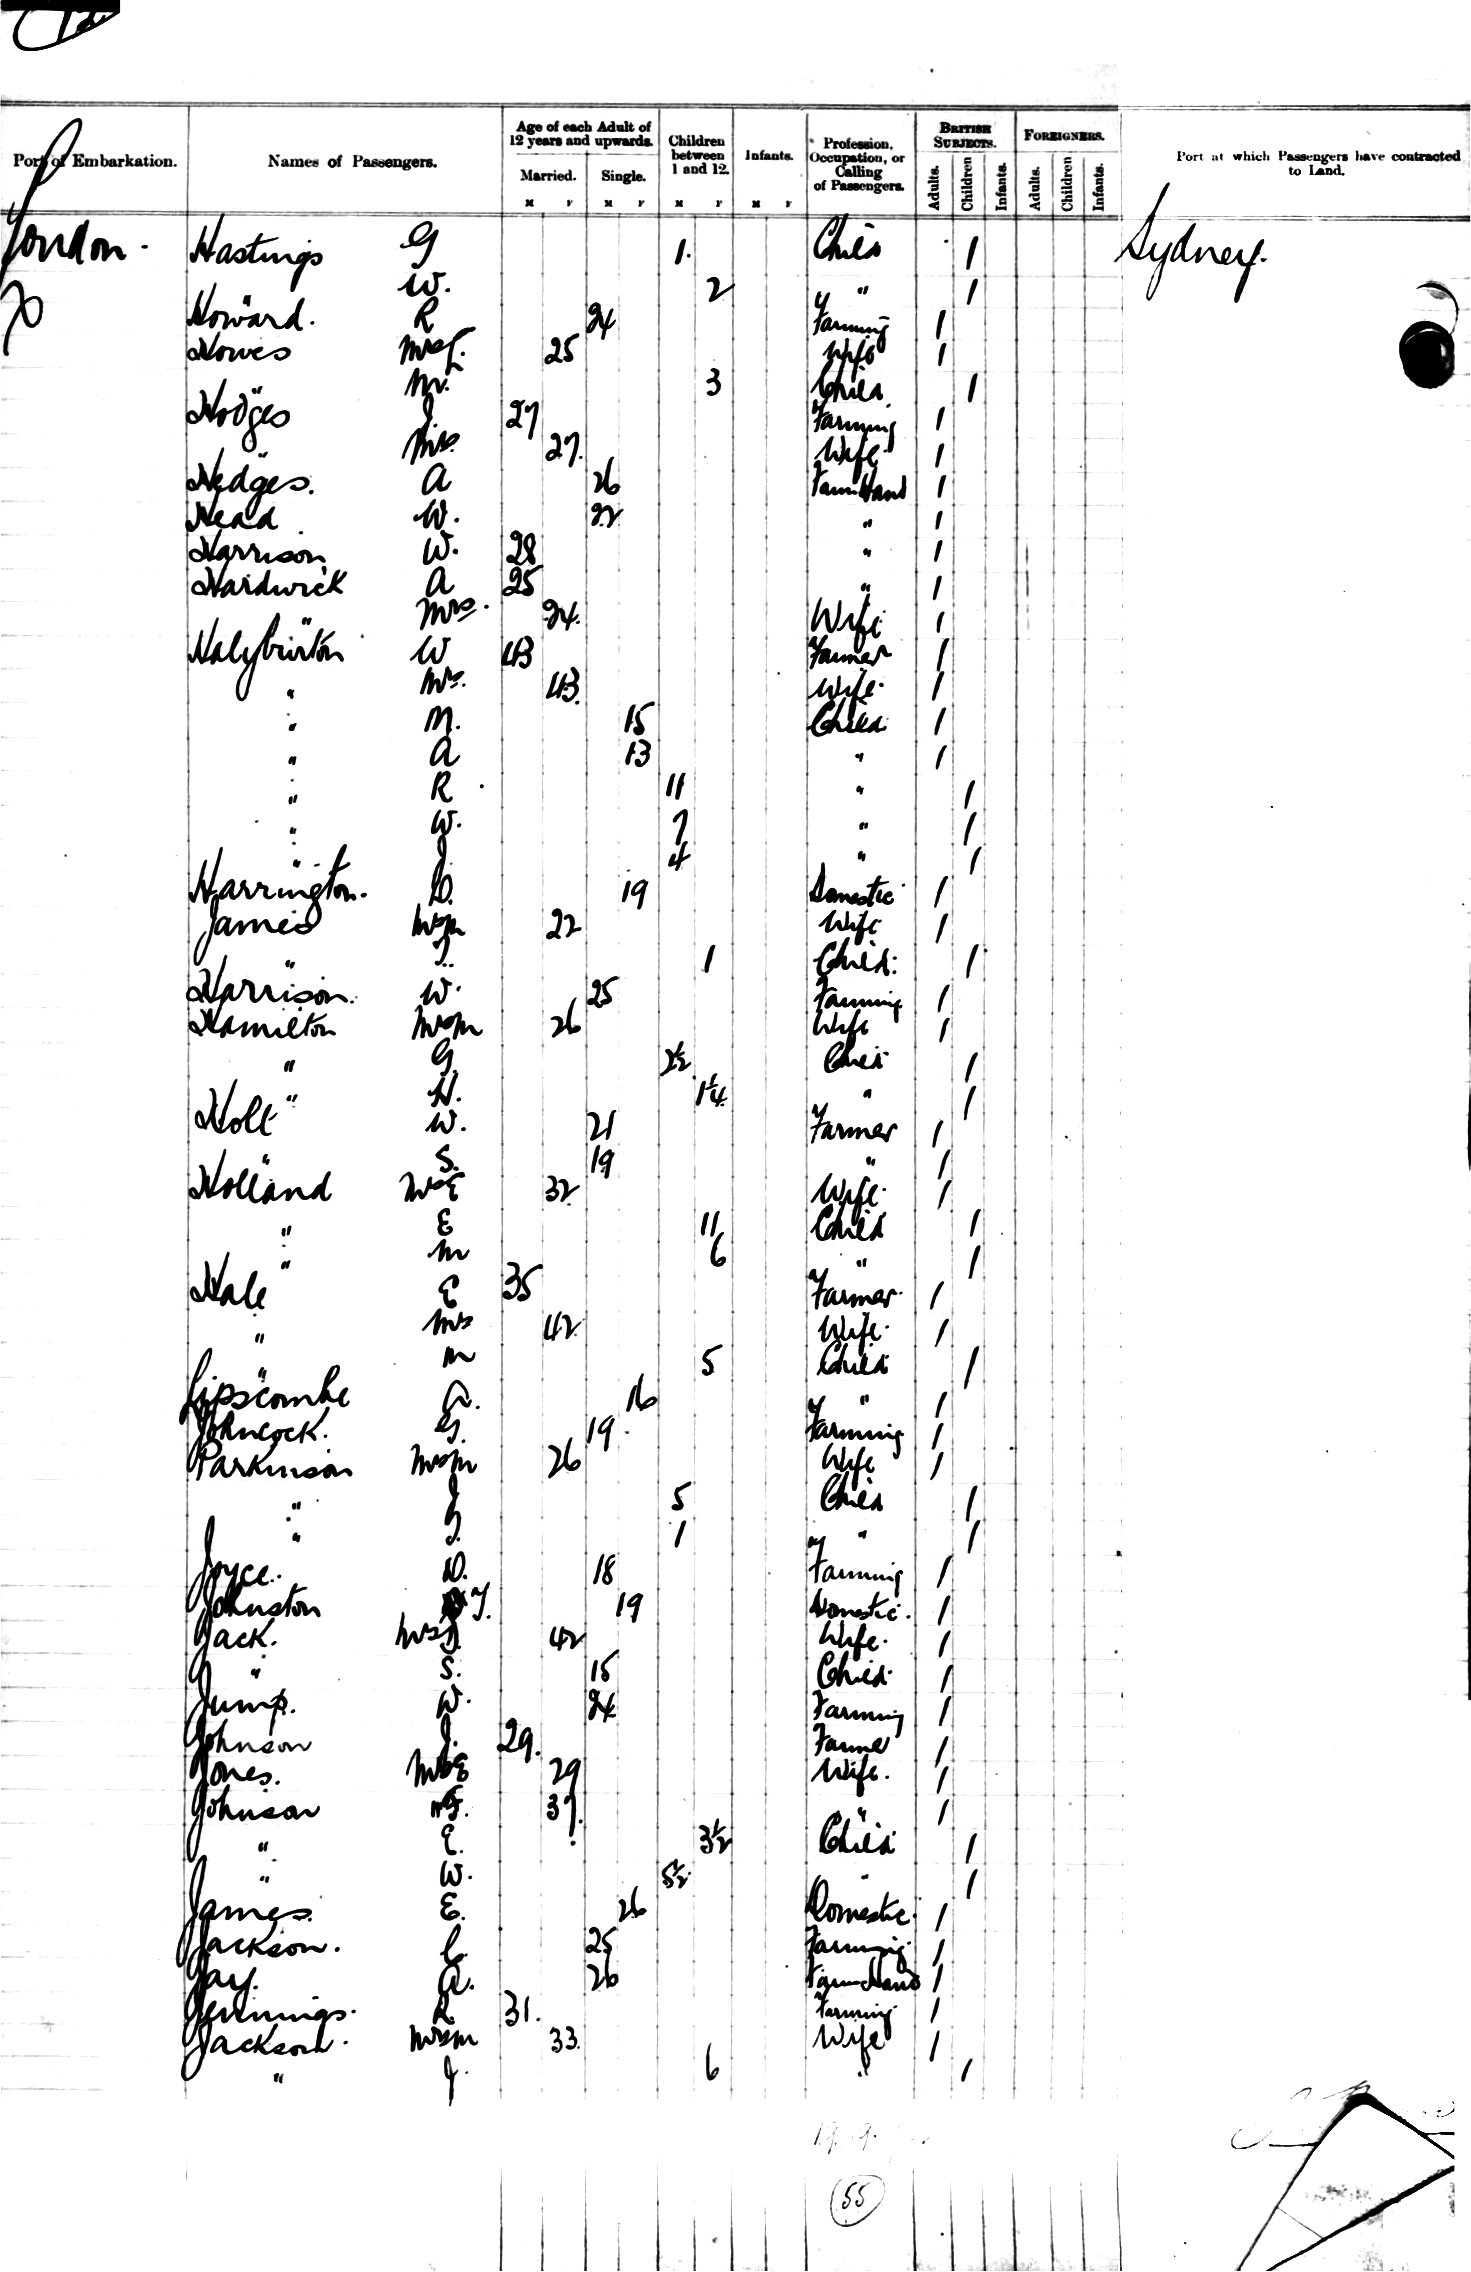 Port of Embarkation. Names of Passengers. Age of each Adult of 12 years and upwards. Children between 1 and 12. Infants. Profession, Occupation, or Calling of Passengers. BRITISH SUBJECTS. FOREIGNERS. Port at which Passengers have contracted to Land.
Married. Single. Adults. Children Infants. Adults. Children Infants.
M F M F M F M F
London. Hastings G 1. Child 1 Sydney.
W. 2 " 1
Howard. R 24 Farming 1
Howes Mrs 25 Wife 1
" M. 3 Child 1
Hodges J 27 Farming 1
" Mrs. 27. Wife 1
Hedges. A 26 Farm Hand 1
Head W. 22 " 1
Harrison W. 28 " 1
Hardwick A 25 " 1
" Mrs. 24. Wife 1
Halyburton W 43 Farmer 1
" Mrs. 43. Wife. 1
" M. 15 Child 1
" A 13 " 1
" R 11 " 1
" W. 7 " 1
" J 4 " 1
Harrington. D. 19 Domestic 1
James Mrs M 22 Wife 1
" 1 Child. 1
Harrison. W. 25 Farming 1
Hamilton Mrs M 26 Wife 1
" G. 2½ Child 1
" H. 1¼ " 1
Holt W. 21 Farmer 1
" S. 19 " 1
Holland Mrs E 32 Wife. 1
" E 11 Child 1
" M 6 " 1
Hale E 35 Farmer. 1
" Mrs 42. Wife. 1
" M 5 Child 1
Lipscombe A. 16 " 1
Johncock. G. 19 Farming 1
Parkinson Mrs M 26 Wife 1
" J 5 Child 1
" 1 " 1
Joyce. D. 18 Farming 1
Johnston 19 Domestic. 1
Jack. Mrs 42 Wife. 1
" S. 15 Child 1
Jump. W. 24 Farming 1
Johnson J. 29. Farmer 1
Jones. Mrs E 29 Wife. 1
Johnson 37. " 1
" E. 3½ Child 1
" W. 5½ " 1
James. E. 26 Domestic. 1
Jackson. C. 25 Farming 1
Jay. A. 26 Farm Hand 1
Jennings. R 31. Farming 1
Jackson. Mrs M 33. Wife 1
" J. 6 " 1
55